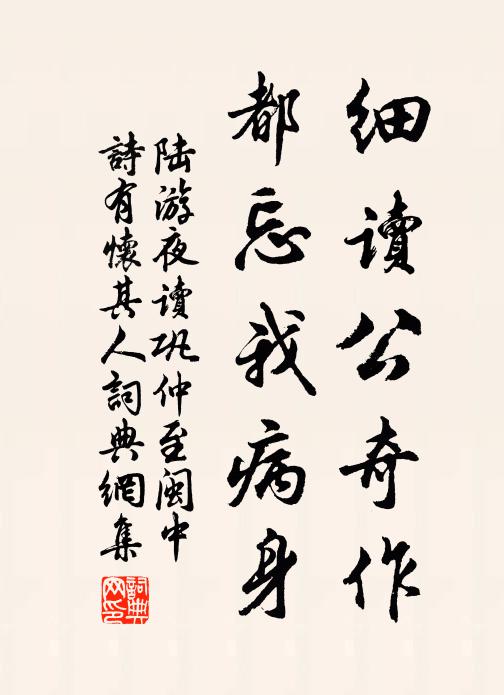 細讀公奇作
都忘我病身
陆游夜讀巩仲至閩中
詩有懷其人詞典網集
詞典网印